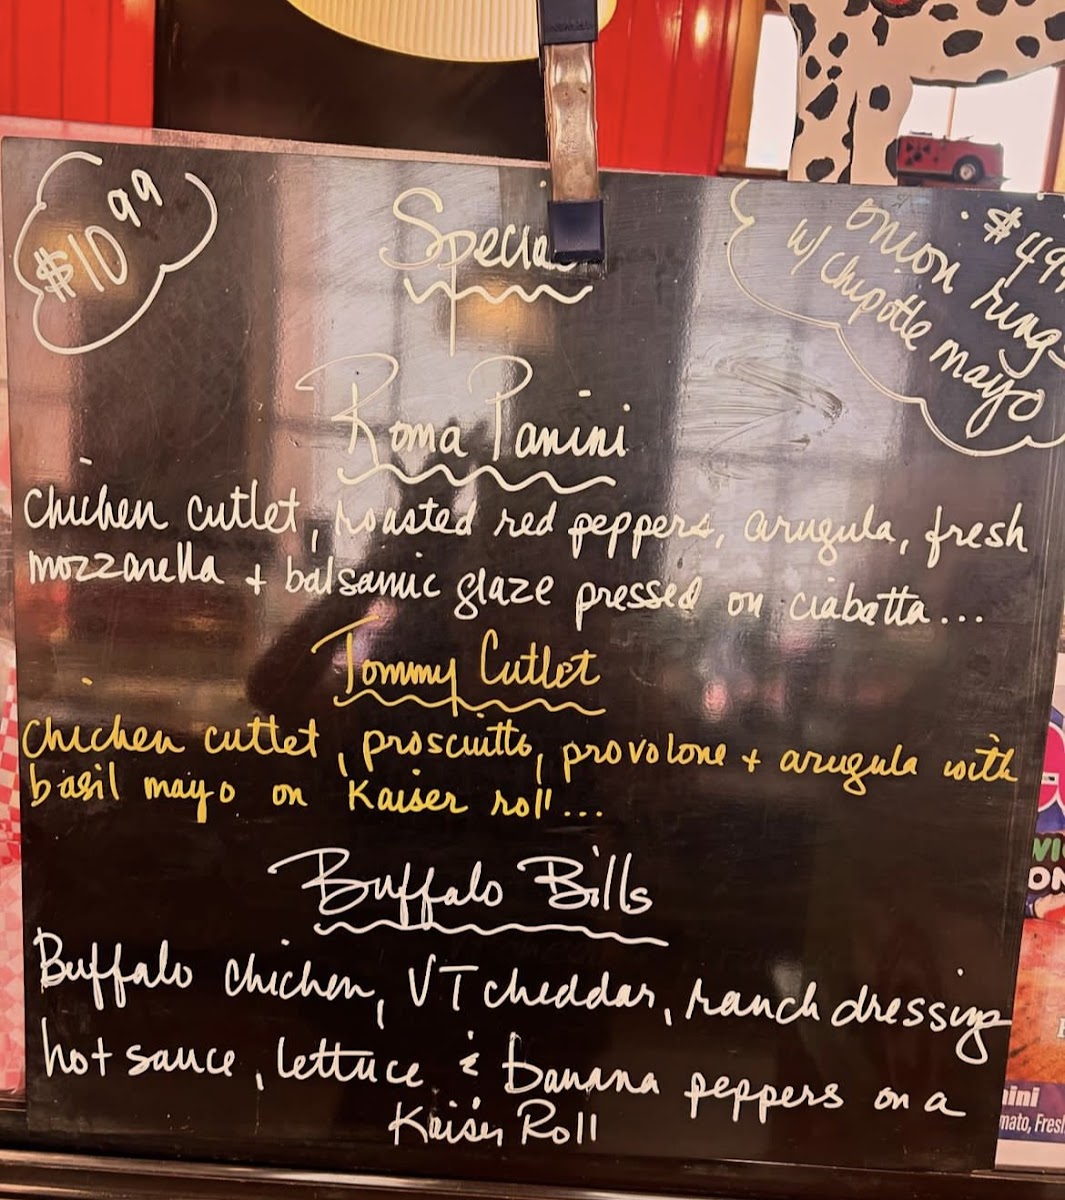 $10 99
Specia
onion ring
w/ chipotle mayo
$4 99
Roma Panini
Chicken cutlet, roasted red peppers, arugula, fresh
mozzarella + balsamic glaze pressed on ciabatta...
Tommy Cutlet
Chicken cutlet, prosciutto, provolone + arugula with
basil mayo on Kaiser roll...
Buffalo Bills
Buffalo chicken, VT cheddar, ranch dressing
hot sauce, lettuce & banana peppers on a
Kaiser Roll